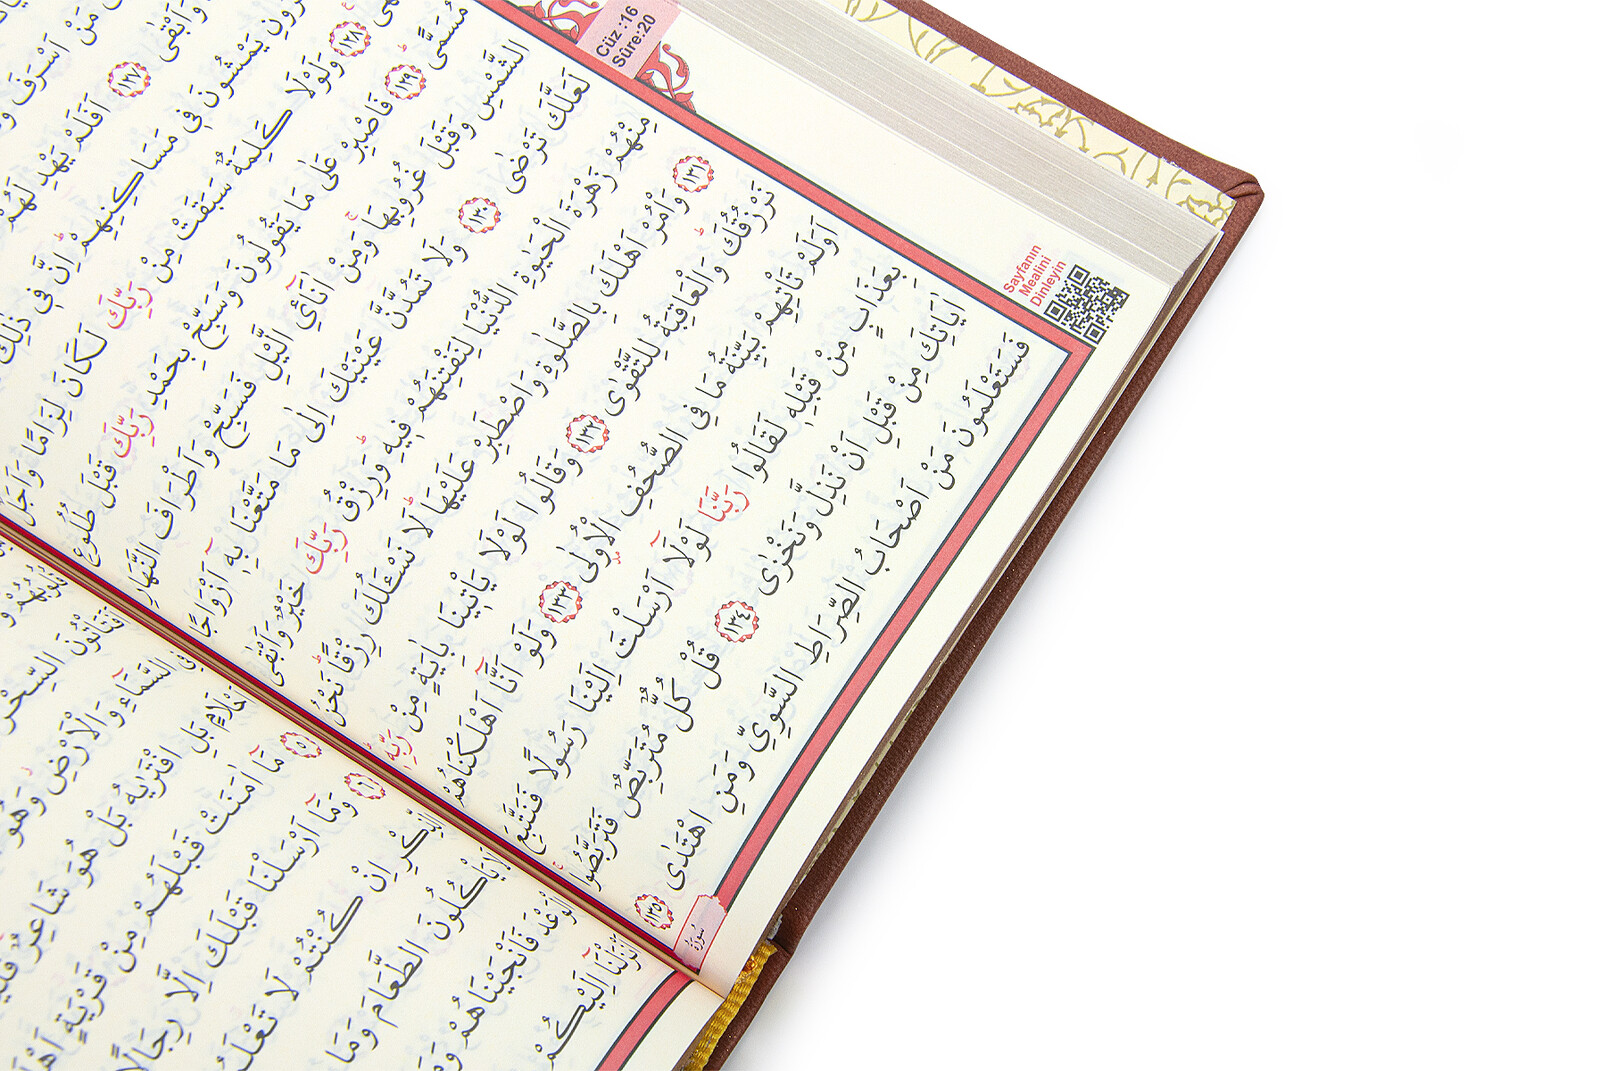 Cüz :16
Sûre:20
Sayfanın
Mealini
Dinleyin
مَنْ اَسْرَفَ
وَاَبْقٰى ﴿١٢٧﴾ اَفَلَمْ يَهْدِ لَهُمْ
يَمْشُونَ فٖى مَسَاكِنِهِمْ اِنَّ فٖى ذٰلِكَ
﴿١٢٨﴾ وَلَوْلَا كَلِمَةٌ سَبَقَتْ مِنْ رَبِّكَ لَكَانَ لِزَامًا وَاَجَلٌ
مُسَمًّى ﴿١٢٩﴾ فَاصْبِرْ عَلٰى مَا يَقُولُونَ وَسَبِّحْ بِحَمْدِ رَبِّكَ قَبْلَ طُلُوعِ
الشَّمْسِ وَقَبْلَ غُرُوبِهَا وَمِنْ اٰنَٓائِ الَّيْلِ فَسَبِّحْ وَاَطْرَافَ النَّهَارِ
لَعَلَّكَ تَرْضٰى ﴿١٣٠﴾ وَلَا تَمُدَّنَّ عَيْنَيْكَ اِلٰى مَا مَتَّعْنَا بِهٖٓ اَزْوَاجًا
مِنْهُمْ زَهْرَةَ الْحَيٰوةِ الدُّنْيَا لِنَفْتِنَهُمْ فٖيهِ وَرِزْقُ رَبِّكَ خَيْرٌ وَاَبْقٰى
﴿١٣١﴾ وَأْمُرْ اَهْلَكَ بِالصَّلٰوةِ وَاصْطَبِرْ عَلَيْهَا لَا نَسْـَٔلُكَ رِزْقًا نَحْنُ
نَرْزُقُكَ وَالْعَاقِبَةُ لِلتَّقْوٰى ﴿١٣٢﴾ وَقَالُوا لَوْلَا يَأْتٖينَا بِاٰيَةٍ مِنْ رَبِّهٖ
اَوَلَمْ تَأْتِهِمْ بَيِّنَةُ مَا فِى الصُّحُفِ الْاُولٰى ﴿١٣٣﴾ وَلَوْ اَنَّٓا اَهْلَكْنَاهُمْ
بِعَذَابٍ مِنْ قَبْلِهٖ لَقَالُوا رَبَّنَا لَوْلَٓا اَرْسَلْتَ اِلَيْنَا رَسُولًا فَنَتَّبِعَ
اٰيَاتِكَ مِنْ قَبْلِ اَنْ نَذِلَّ وَنَخْزٰى ﴿١٣٤﴾ قُلْ كُلٌّ مُتَرَبِّصٌ فَتَرَبَّصُوا
فَسَتَعْلَمُونَ مَنْ اَصْحَابُ الصِّرَاطِ السَّوِىِّ وَمَنِ اهْتَدٰى ﴿١٣٥﴾
سُورَةُ
اَفَتَأْتُونَ السِّحْرَ
فِى السَّمَٓاءِ وَالْاَرْضِ وَهُوَ
اَحْلَامٍ بَلِ افْتَرٰيهُ بَلْ هُوَ شَاعِرٌ
﴿٥﴾ مَٓا اٰمَنَتْ قَبْلَهُمْ مِنْ قَرْيَةٍ
﴿٦﴾ وَمَٓا اَرْسَلْنَا قَبْلَكَ اِلَّا رِجَالًا
الذِّكْرِ اِنْ كُنْتُمْ لَا
لَا يَأْكُلُونَ الطَّعَامَ وَمَا
الْوَعْدَ فَاَنْجَيْنَاهُمْ
اَنْزَلْنَٓا اِلَيْكُمْ